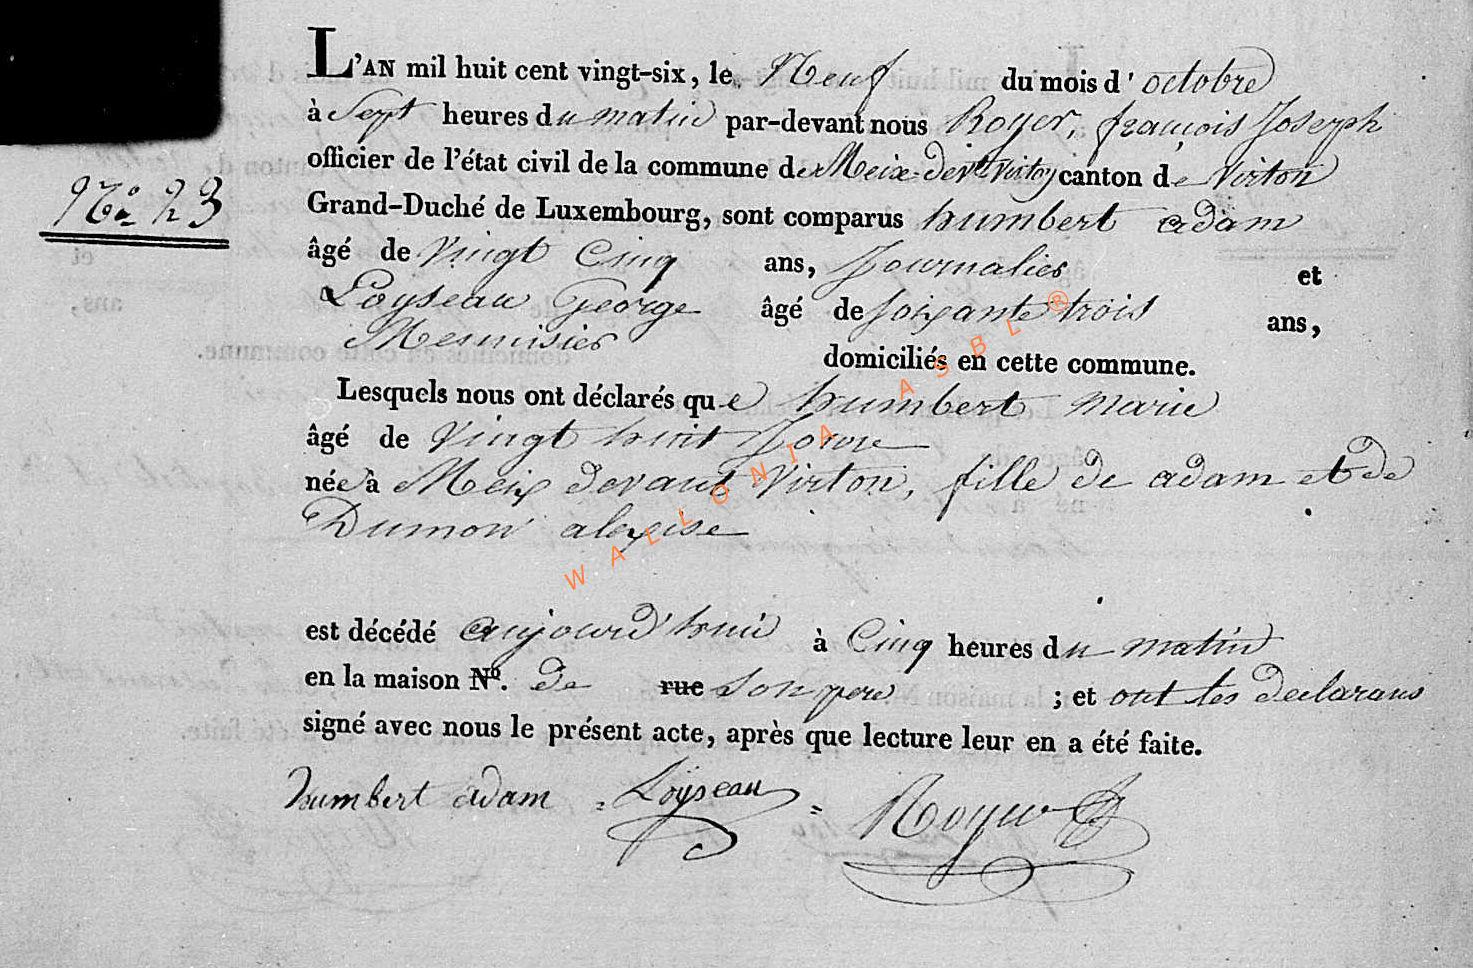 L'AN mil huit cent vingt-six, le Neuf du mois d'octobre
à Sept heures du matin par-devant nous Royer, françois Joseph
officier de l'état civil de la commune de Meix-devt Virton canton de Virton
N.o 23
Grand-Duché de Luxembourg, sont comparus humbert adam
âgé de vingt Cinq ans, Journalier et
Loyseau George âgé de soixante trois ans,
Menuisier domiciliés en cette commune.
Lesquels nous ont déclarés que humbert marie
âgé de vingt huit Jour
née à Meix devant Virton, fille de adam et de
Dumon aloyse
est décédé aujourd'hui à Cinq heures du matin
en la maison Nº. de rue son pere ; et ont les declarans
signé avec nous le présent acte, après que lecture leur en a été faite.
humbert adam = Loyseau = Royer
WALLONIA ASBL ®